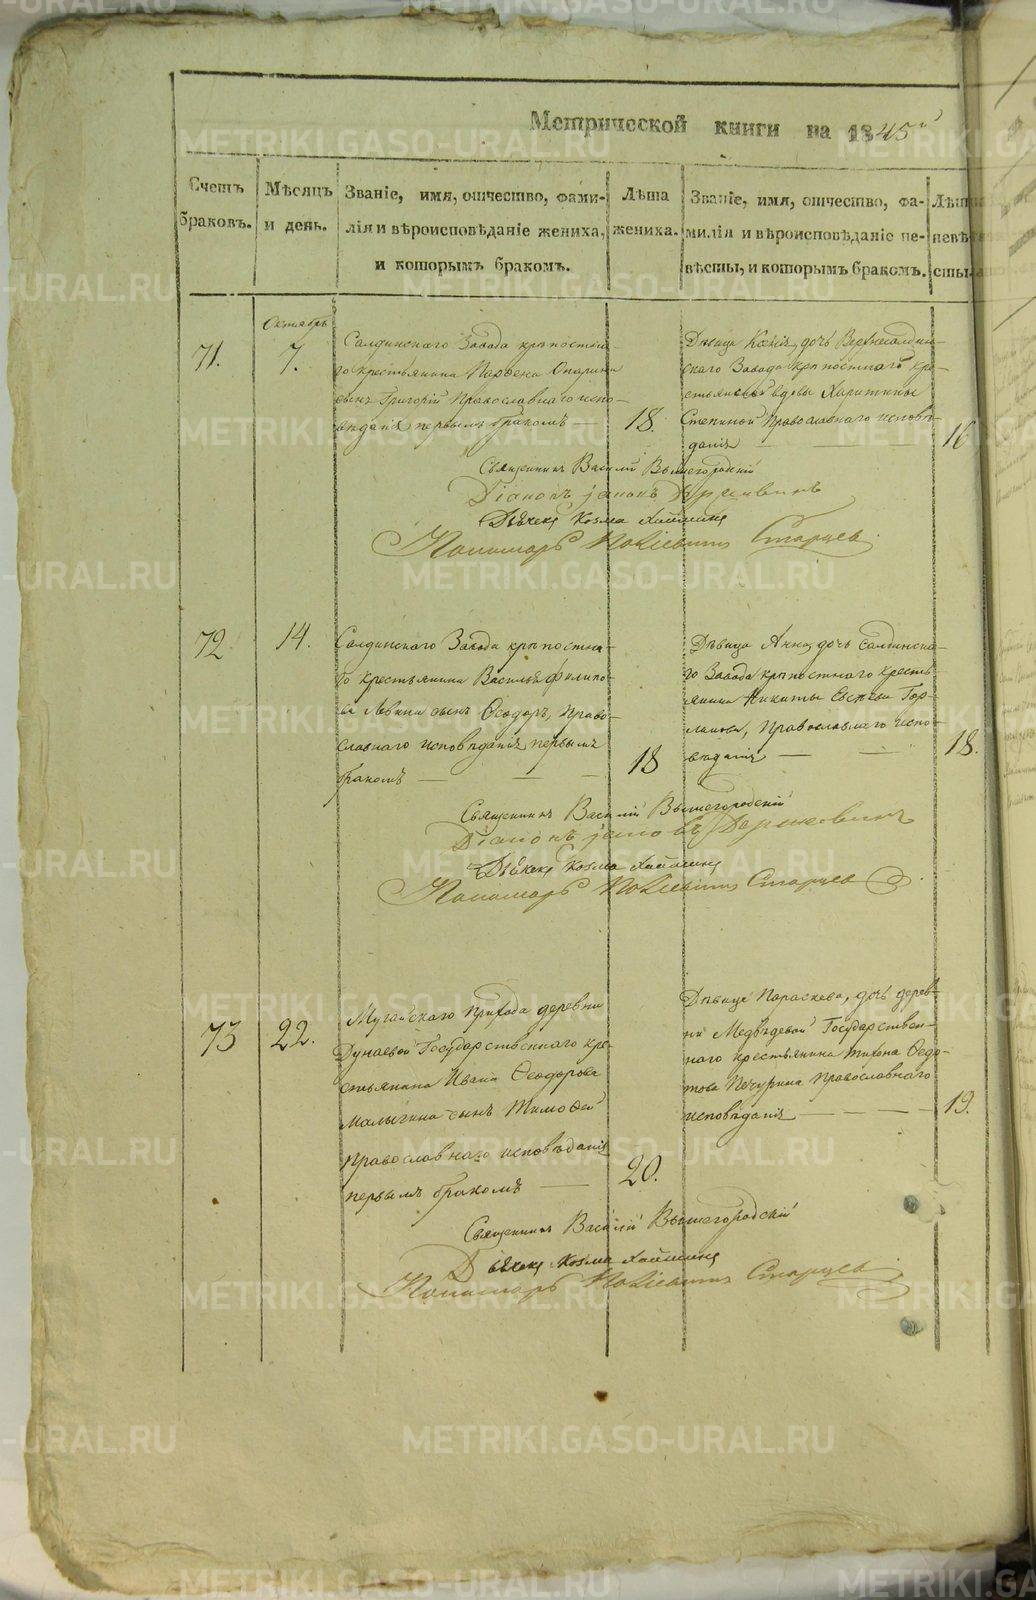 Метрической книги на 1845й
Счетъ браковъ.
Мѣсяцъ и день.
Званіе, имя, отчество, фами-
лія и вѣроисповѣданіе жениха,
и которымъ бракомъ.
Лѣта
жениха.
Званіе, имя, отчество, фа-
милія и вѣроисповѣданіе не-
вѣсты, и которымъ бракомъ.
Лѣт
невѣ
сты.
Октябрь
71.
7.
Салдинскаго Завода крѣпостна-
го крестьянина Парѳена Опарина
сынъ Григорій Православнаго испо-
вѣданія первымъ бракомъ —
18.
Дѣвица дочь Верхнесалдин-
скаго Завода крѣпостнаго кре-
стьянской вдовы Харитины
Степиной Православнаго исповѣ-
данія
16
Священникъ Василій Вышегородскій
Діаконъ
Дьячекъ Козма
Пономарь Старцев
72.
14.
Салдинскаго Завода крѣпостна-
го крестьянина Василья Филипо-
ва сынъ Ѳеодоръ, Право-
славнаго исповѣданія первымъ
бракомъ —
18
Дѣвица Анна дочь Салдинска-
го Завода крѣпостнаго кресть-
янина Никиты Гор-
Православнаго испо-
вѣданія
18.
Священникъ Василій Вышегородскій
Діаконъ
Дьячекъ Козма
Пономарь Старцев
73
22.
Мугайскаго прихода деревни
Дунаевой Государственнаго кре-
стьянина Ивана Ѳеодорова
Малыгина сынъ Тимоѳей
Православнаго исповѣданія
первымъ бракомъ —
20.
Дѣвица Параскева, дочь дерев-
ни Медвѣдевой Государствен-
наго крестьянина Тихона Ѳедо-
това Печурина Православнаго
исповѣданія
19.
Священникъ Василій Вышегородскій
Дьячекъ Козма
Пономарь Старцев
METRIKI.GASO-URAL.RU